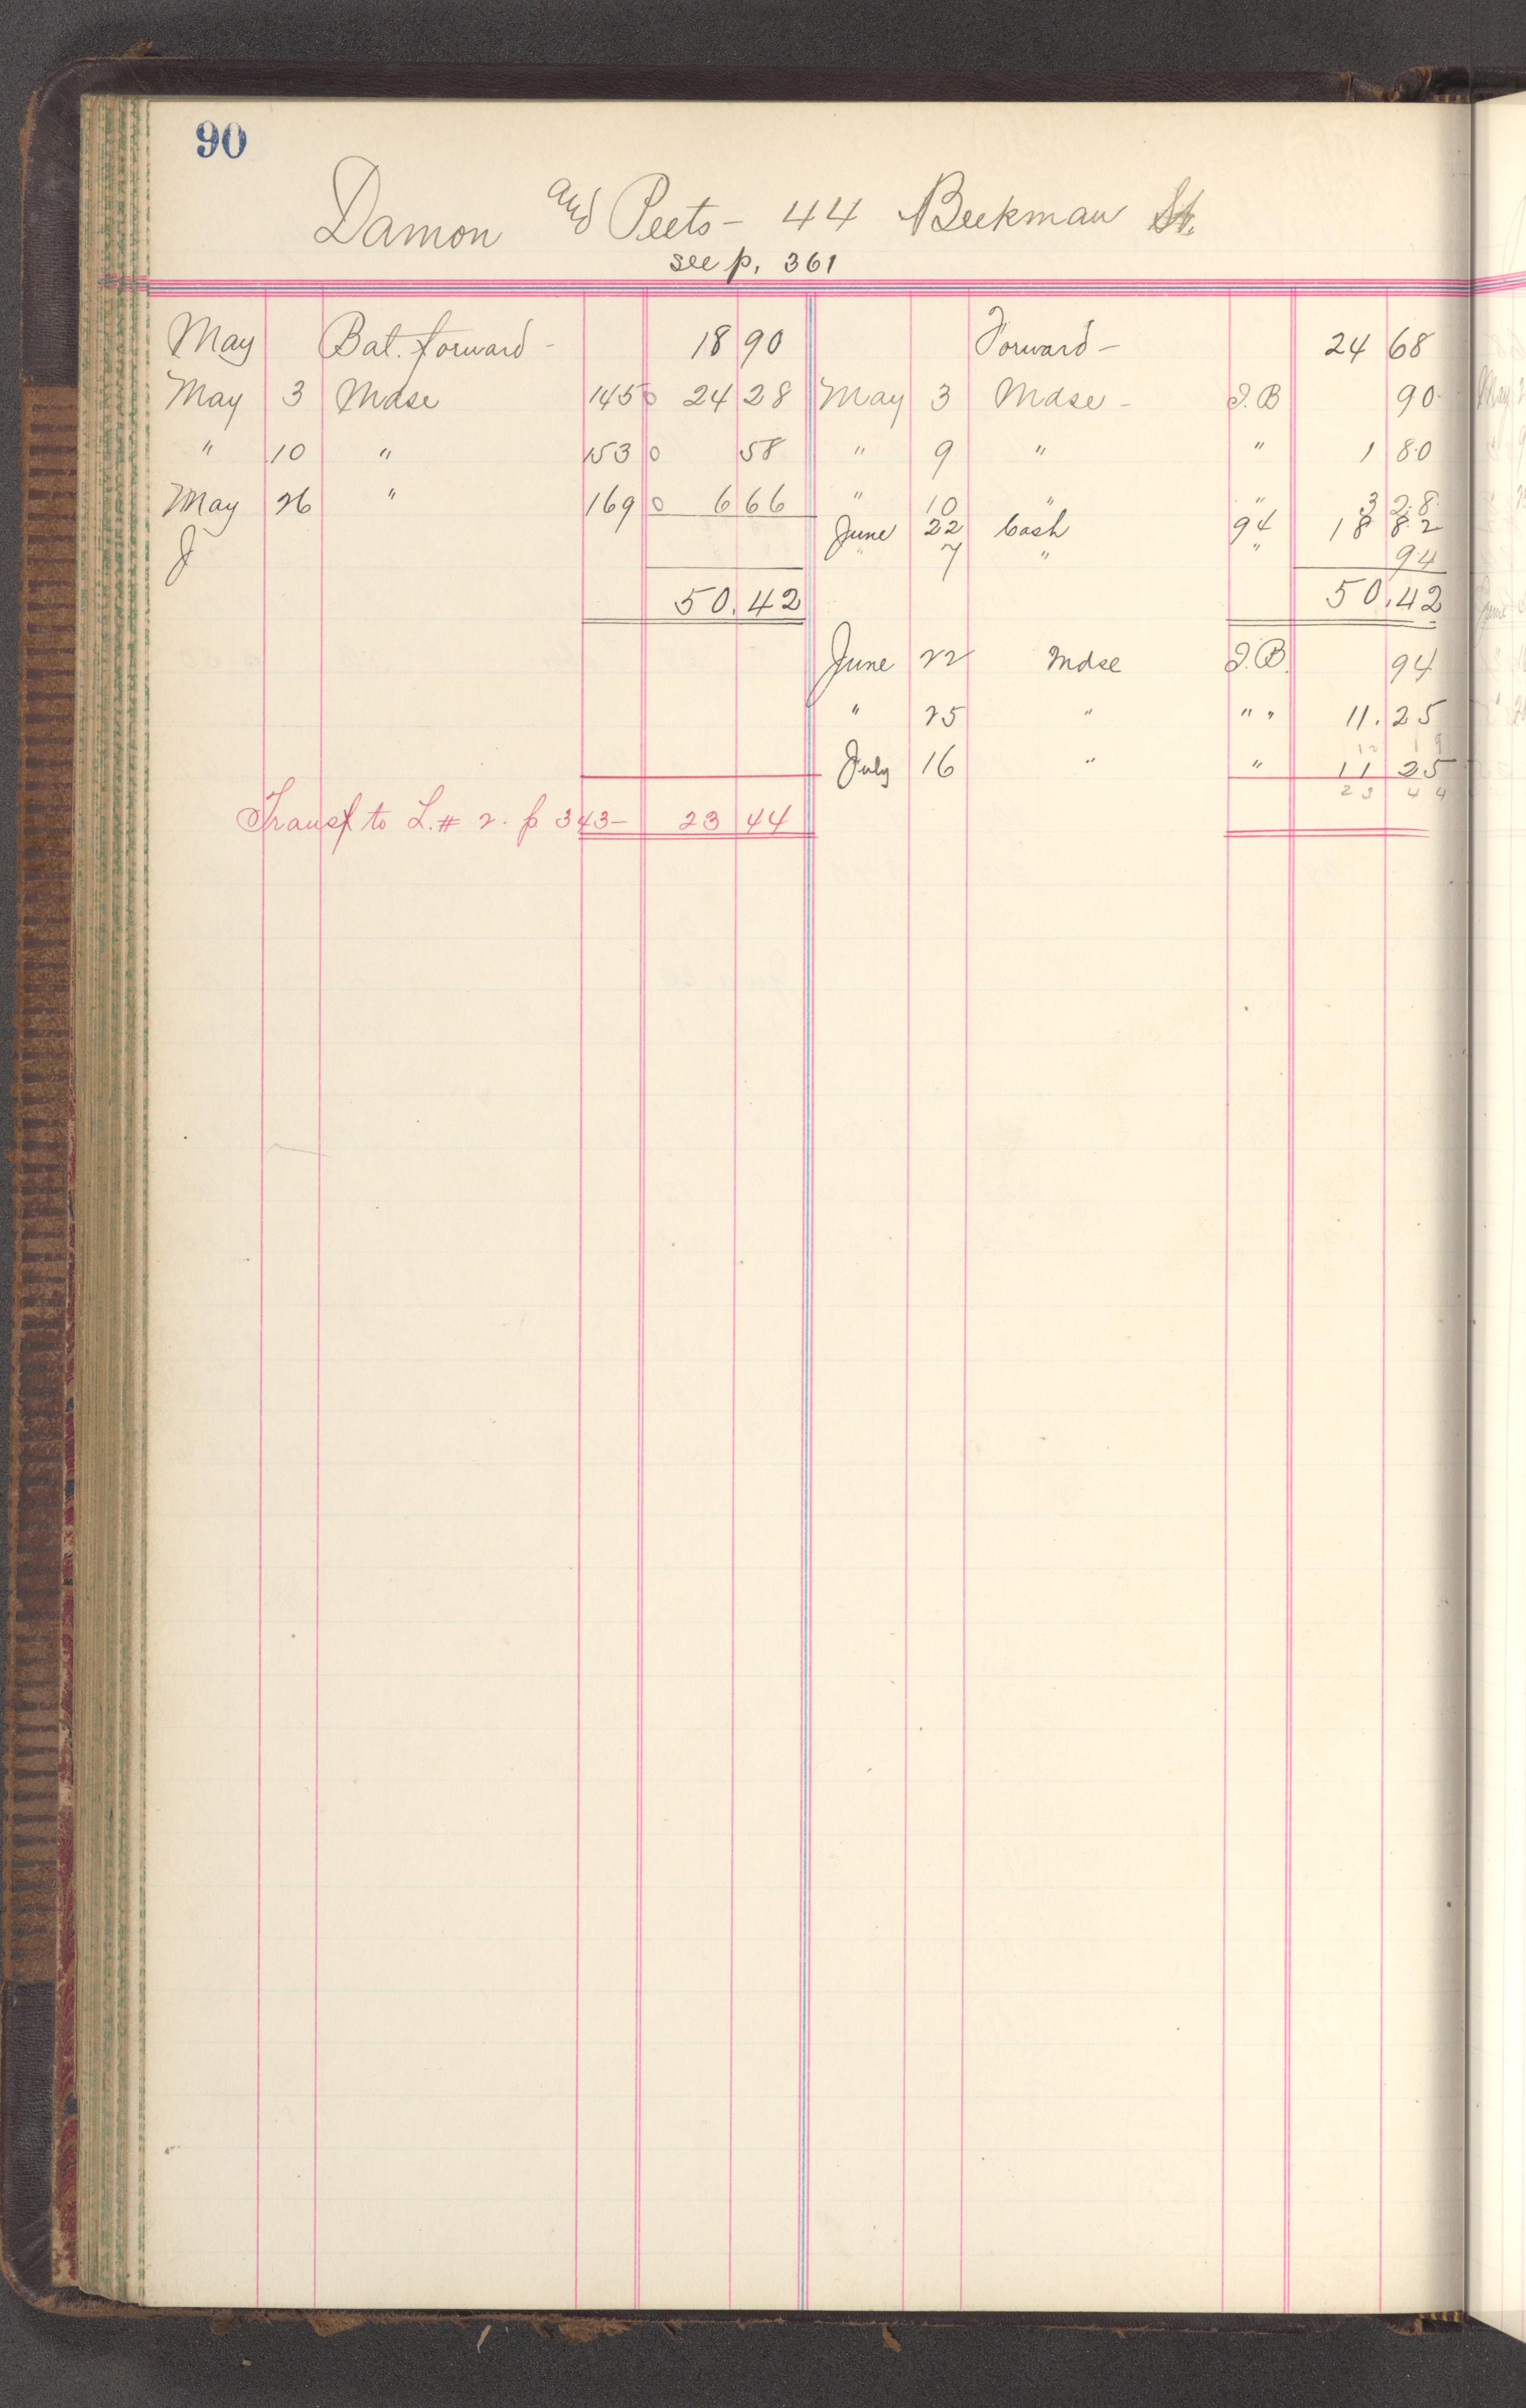 90
Damon and Peets - 44 Beekman St.
see p. 361
May Bal. forward - 18 90 Forward - 24 68
May 3 Mdse 145 0 24 28 May 3 Mdse - I.B 90
" 10 " 153 0 58 " 9 " " 1 80
May 26 " 169 0 6 66 " 10 " " 3 28
J June 22 Cash 94 18 82
" 7 " " 94
50.42 50.42
June 22 Mdse I.B. 94
" 25 " " " 11.25
12 19
July 16 " " 11 25
23 44
Transf to L. # 2. p 343- 23 44